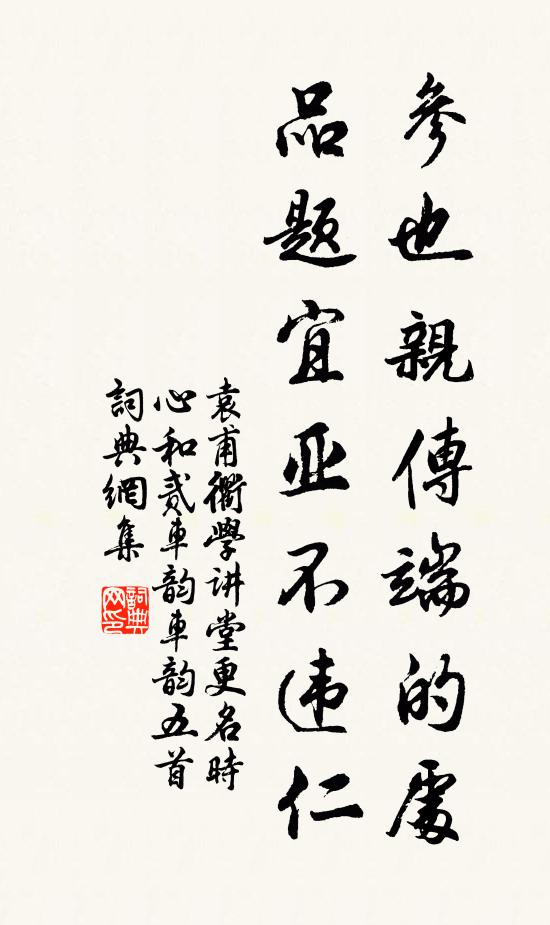 參也親傳端的處
品题宜亚不违仁
袁甫衢學讲堂更名時
心和贰車韵車韵五首
詞典網集
詞典网印